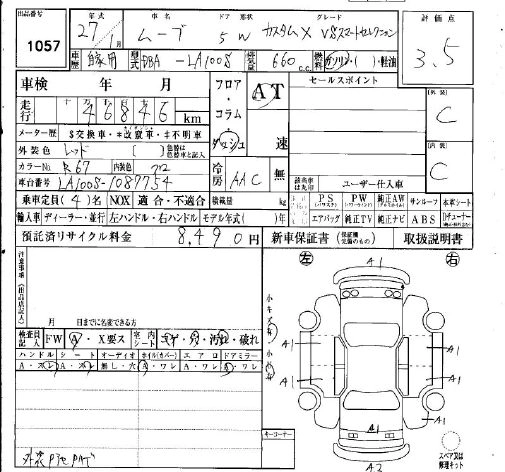 出品番号 1057
年式 27年1月 車名 ムーブ ドア 形状 5 W グレード カスタムX VSスマートセレクション 評価点 3.5
車歴 自家用 型式 DBA-LA100S 排気量 660 c.c. 燃料 ガソリン・( )・軽油
車検 年 月
走行 46846 km
フロア・コラム・ダッシュ AT 速
セールスポイント
外装 C
内装 C
メーター歴 $交換車・*改ざん車・#不明車
外装色 レッド ( )
カラーNo. R67 内装色
車台番号 LA100S-1087754
冷房 AAC
乗車定員 (4)名 NOX 適合・不適合 積載量 kg
輸入車 ディーラー・並行 左ハンドル・右ハンドル モデル年式( )年
ユーザー仕入車
PS PW 純正AW サンルーフ 本革シート
エアバッグ 純正TV 純正ナビ ABS
預託済リサイクル料金 8,490 円 新車保証書 取扱説明書
注意事項(出品店記入)
月 日までに名変できる方
検査員記入 FW A・X要ス 室内シート コゲ・穴・汚れ・破れ
ハンドル シート オーディオ ホイル(カバー) エアロ ドアミラー
A・スレ A・スレ 無し・穴 A・ワレ A・ワレ A・ワレ
左 右
A1
A1 A1
A1 A1
A1 A1
A2
キーコーナー
スペア又は修理キット